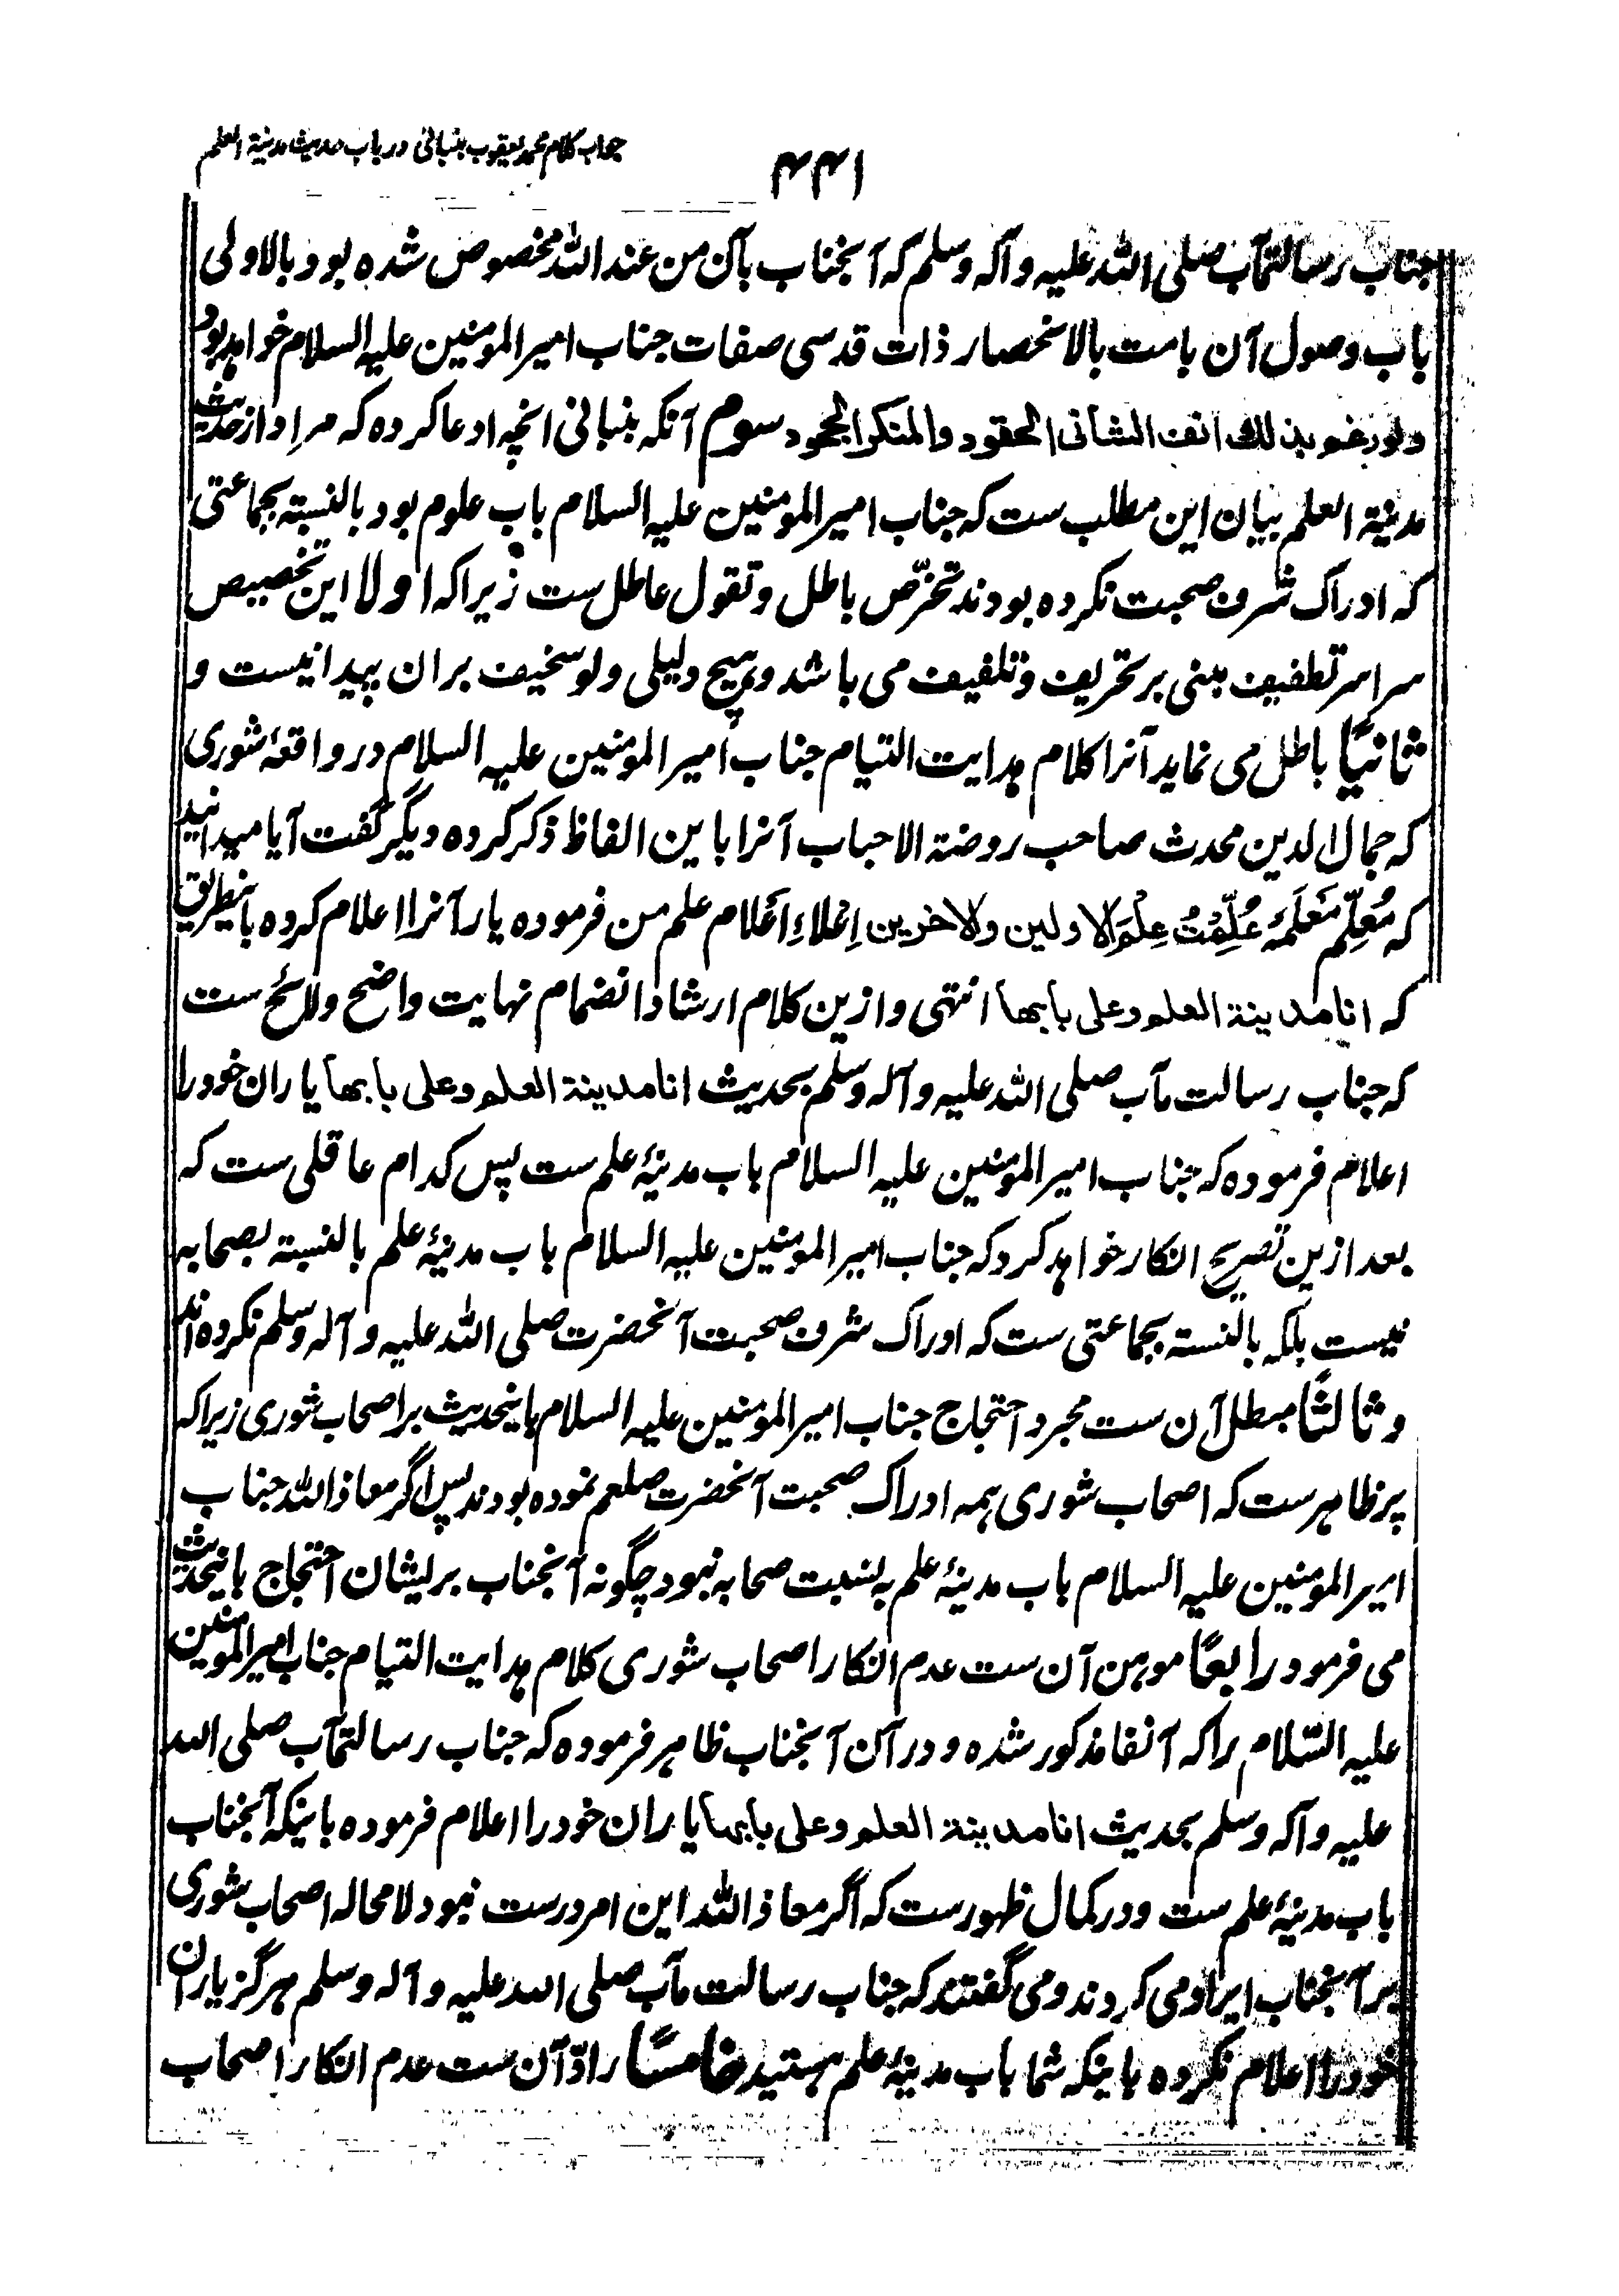 جواب کلام محمد یعقوب بنبانی در باب حدیث مدینة العلم
۴۴۱
جناب رسالتمآب صلی الله علیه و آله وسلم که آنجناب بآن من عند الله مخصوص شده بود بالاولی
باب وصول آن بامت بالانحصار ذات قدسی صفات جناب امیر المومنین علیه السلام خواهد بود
ولو رغم بذلك انف الشانی الحقود والمنکر الجحود سوم آنکه بنبانی انچه ادعا کرده که مراد از حدیث
مدینة العلم بیان این مطلب ست که جناب امیر المومنین علیه السلام باب علوم بود بالنسبة بجماعتی
که ادراک شرف صحبت نکرده بودند تخرّص باطل و تقول عاطل ست زیرا که اولا این تخصیص
سراسر تطفیف مبنی بر تحریف و تلفیف می باشد و هیچ دلیلی ولو سخیف بران پیدا نیست و
ثانیًا باطل می نماید آنرا کلام هدایت التیام جناب امیر المومنین علیه السلام در واقعهٔ شوری
که جمال الدین محدث صاحب روضة الاحباب آنرا باین الفاظ ذکر کرده و دیگر گفت آیا میدانید
که مُعلِّم مَعلَمَهٔ عُلِّمْتُ عِلْمَ الاولین والاخرین اِعْلاءِ اَعْلام علم من فرموده یا رآنرا اعلام کرده باینطریق
که انا مدینة العلم وعلی بابها انتهی و ازین کلام ارشاد انضمام نهایت واضح ولائح ست
که جناب رسالت مآب صلی الله علیه و آله وسلم بحدیث انا مدینة العلم وعلی بابها یاران خود را
اعلام فرموده که جناب امیر المومنین علیه السلام باب مدینهٔ علم ست پس کدام عاقلی ست که
بعد ازین تصریح انکار خواهد کرد که جناب امیر المومنین علیه السلام باب مدینهٔ علم بالنسبة بصحابه
نیست بلکه بالنسبة بجماعتی ست که ادراک شرف صحبت آنحضرت صلی الله علیه و آله وسلم نکرده اند
و ثالثًا مبطل آن ست مجرد احتجاج جناب امیر المومنین علیه السلام باینحدیث بر اصحاب شوری زیرا که
پر ظاهر ست که اصحاب شوری همه ادراک صحبت آنحضرت صلعم نموده بودند پس اگر معاذ الله جناب
امیر المومنین علیه السلام باب مدینهٔ علم به نسبت صحابه نبود چگونه آنجناب بر ایشان احتجاج باینحدیث
می فرمود رابعًا موهن آن ست عدم انکار اصحاب شوری کلام هدایت التیام جناب امیر المومنین
علیه السّلام را که آنفا مذکور شده و در آن آنجناب ظاهر فرموده که جناب رسالتمآب صلی الله
علیه و آله وسلم بحدیث انا مدینة العلم وعلی بابها یاران خود را اعلام فرموده باینکه آنجناب
باب مدینهٔ علم ست و در کمال ظهور ست که اگر معاذ الله این امر درست نبود لا محاله اصحاب شوری
بر آنجناب ایراد می کردند و می گفتند که جناب رسالت مآب صلی الله علیه و آله وسلم هرگز یاران
خود را اعلام نکرده باینکه شما باب مدینهٔ علم هستید خامسًا رادّ آن ست عدم انکار اصحاب